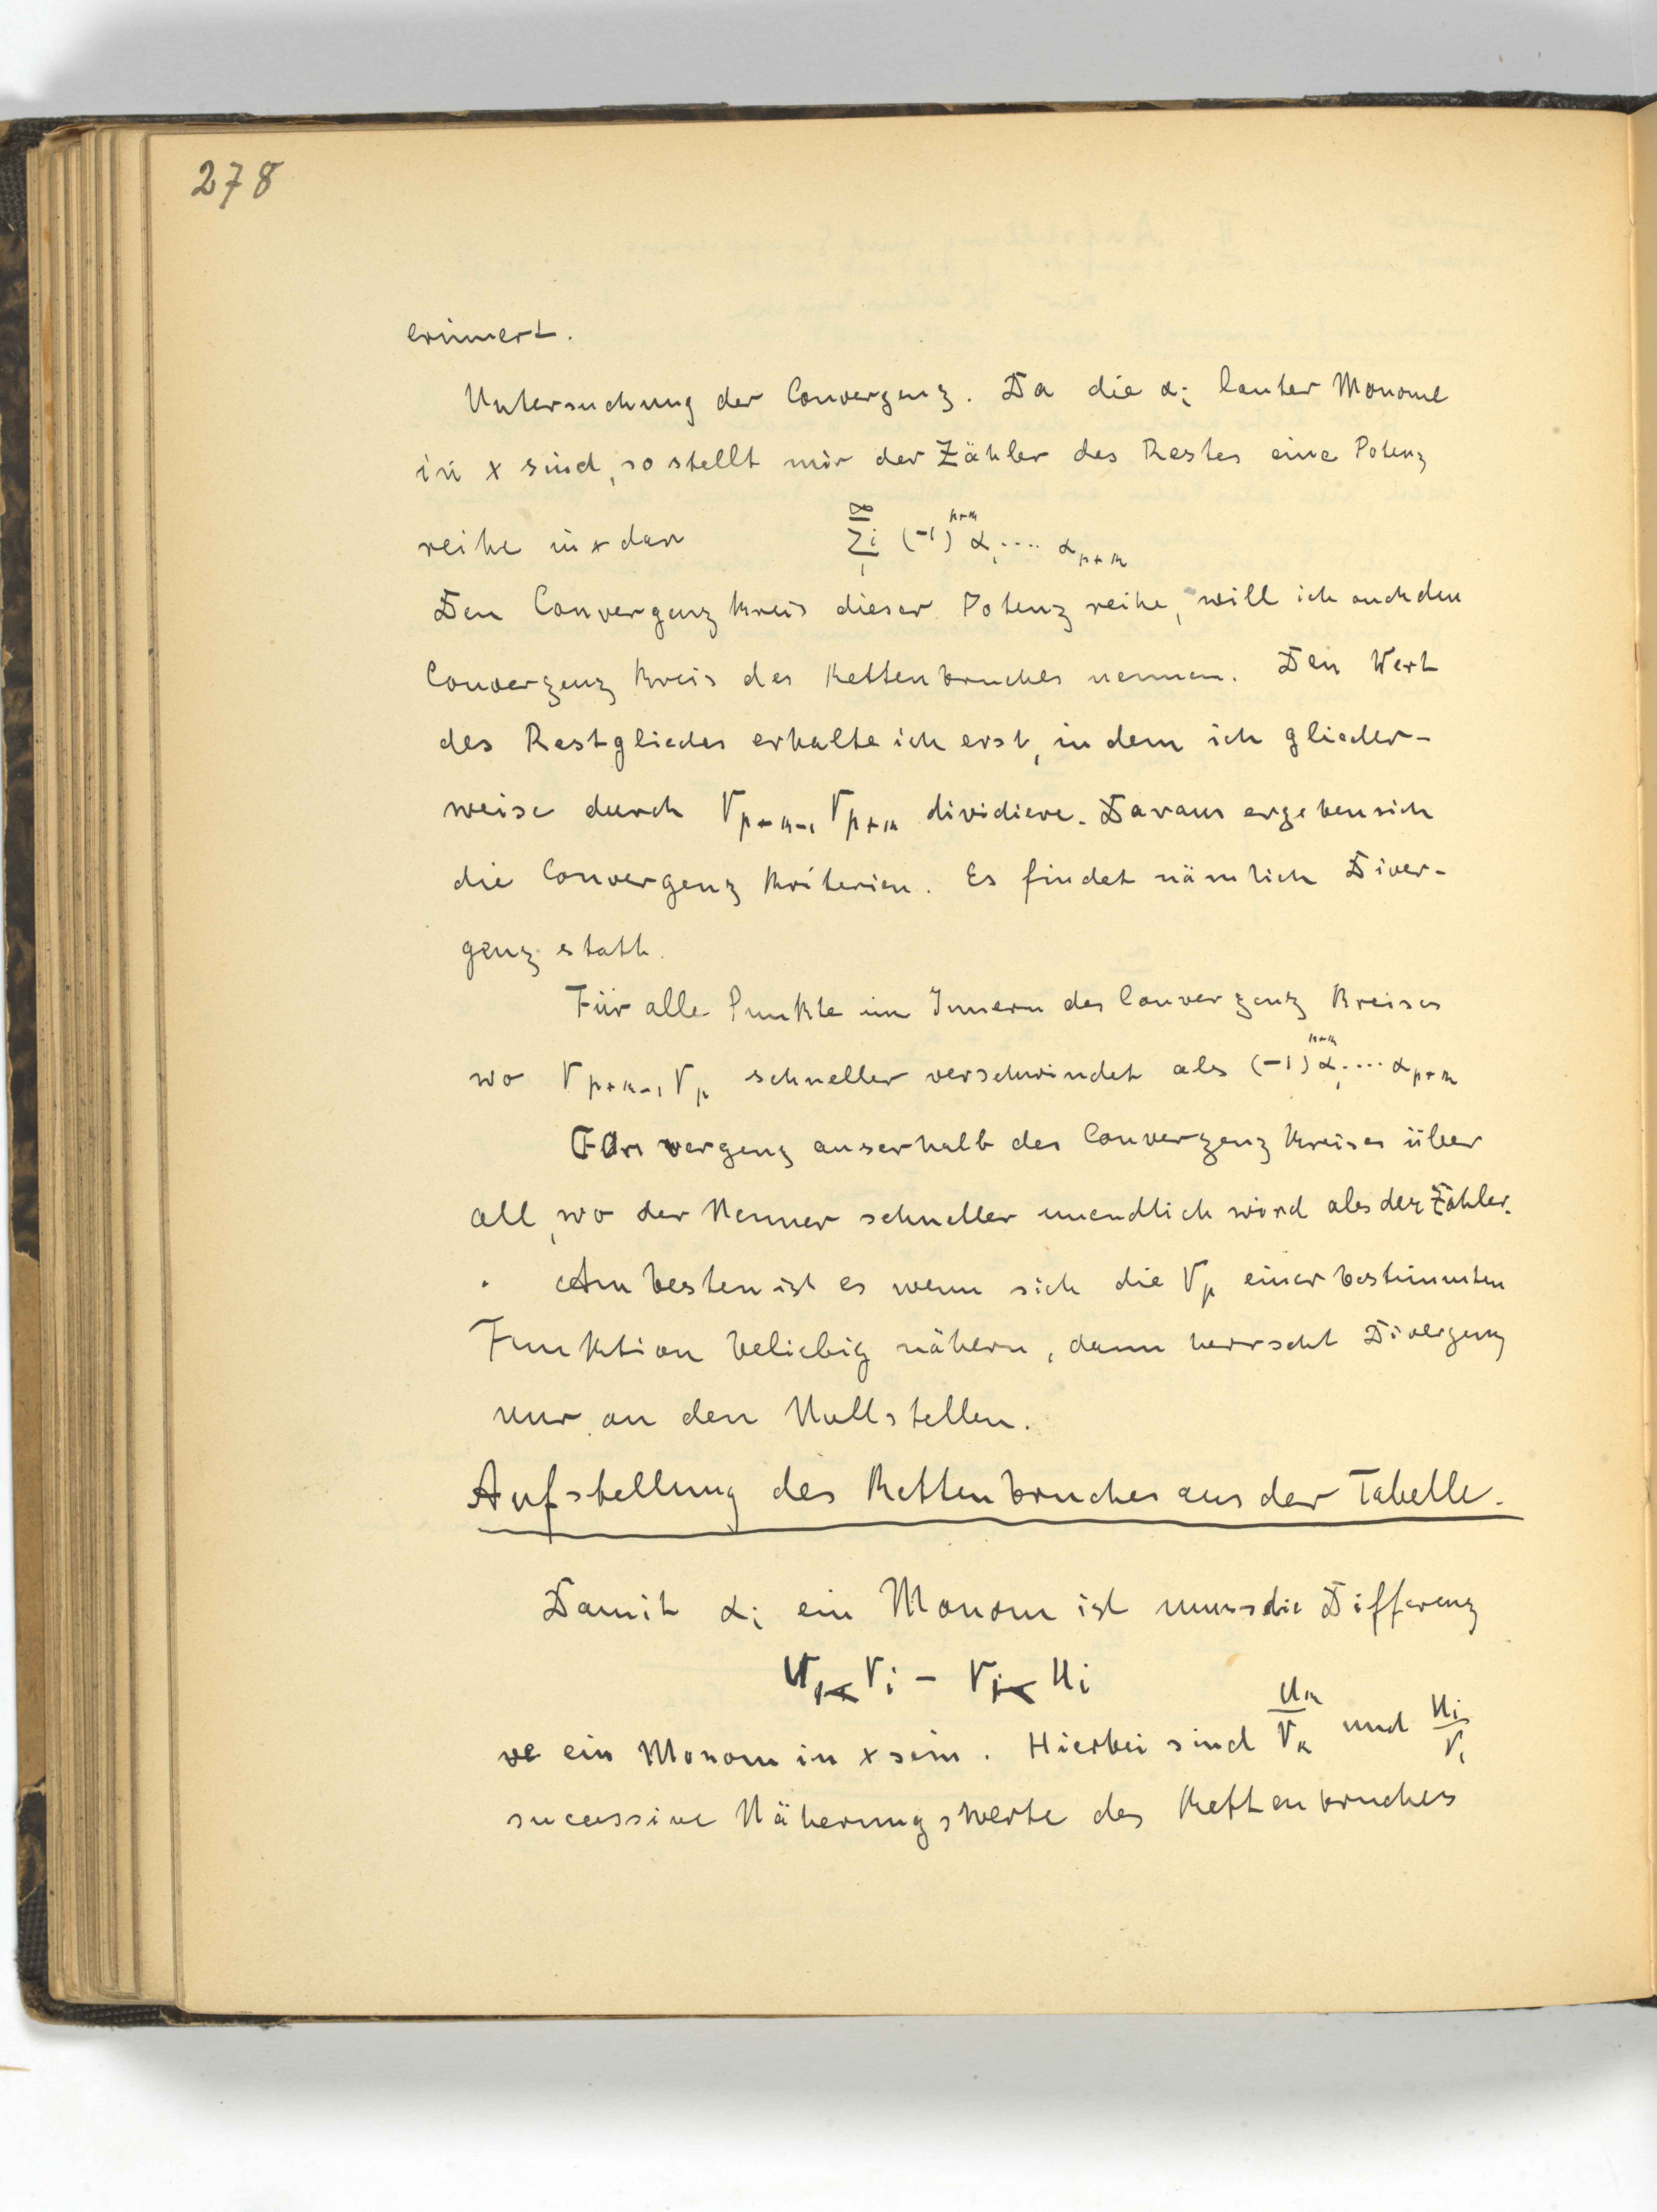 278
erinnert.
Untersuchung der Convergenz. Da die αi lauter Monome
in x sind, so stellt mir der Zähler des Restes eine Potenz
reihe in x dar ∑i (-1)^{p+n} α1 .... αp+n
Den Convergenz kreis dieser Potenz reihe, will ich auch den
Convergenz kreis des Kettenbruches nennen. Den Wert
des Restgliedes erhalte ich erst, in dem ich glieder-
weise durch Vp+n-1 Vp+n dividiere. Daraus ergeben sich
die Convergenz kriterien. Es findet nämlich Diver-
genz statt.
Für alle Punkte im Innern des Convergenz kreises
wo Vp+n-1 Vp schneller verschwindet als (-1)^{p+n} α1 .... αp+n
Convergenz ausserhalb des Convergenz kreises über
all, wo der Nenner schneller unendlich wird als der Zähler.
Am besten ist es wenn sich die Vp einer bestimmten
Funktion beliebig nähern, dann herrscht Divergenz
nur an den Nullstellen.
Aufstellung des Kettenbruches aus der Tabelle.
Damit αi ein Monom ist muss die Differenz
Uk Vi - Vk Ui
ein Monom in x sein. Hierbei sind Uk/Vk und Ui/Vi
sucessive Näherungswerte des Kettenbruches